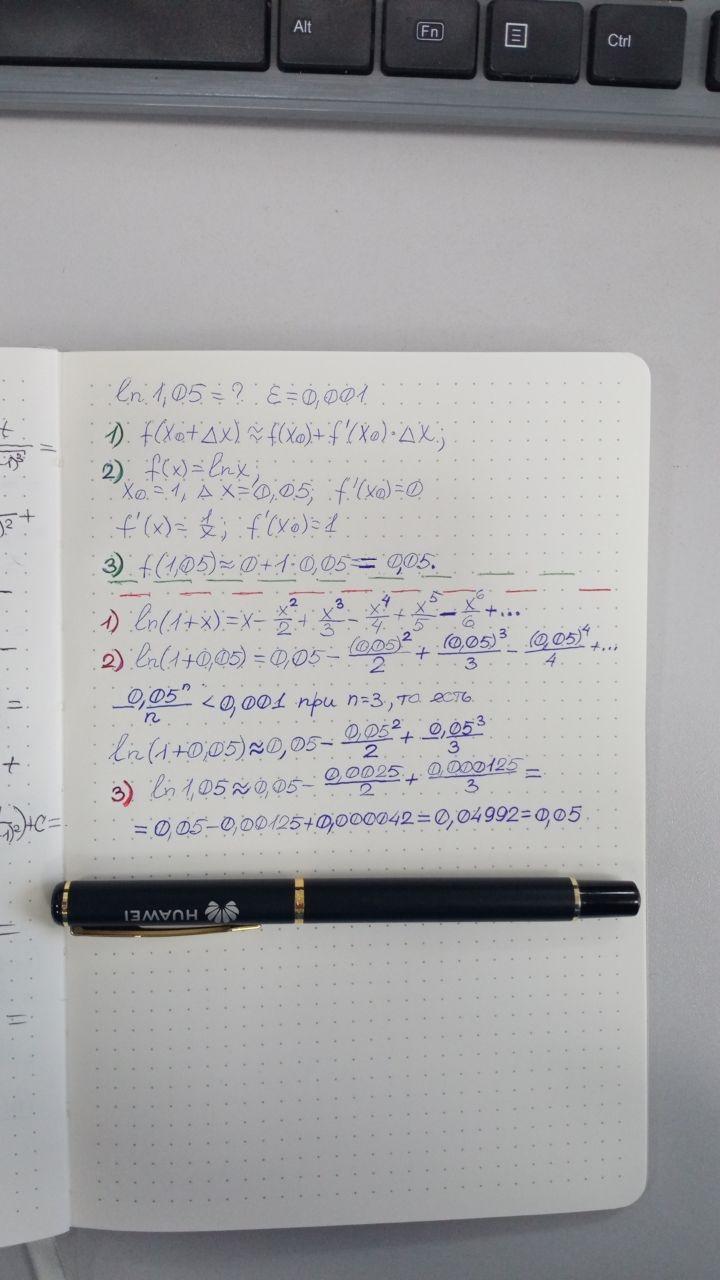 Alt
Fn
Ctrl
ln 1,05 = ? ε=0,001
1) f(x₀+Δx) ≈ f(x₀)+f'(x₀)·Δx;
2) f(x)=lnx;
x₀=1, Δx=0,05; f'(x₀)=0
f'(x)= 1/x; f'(x₀)=1
3) f(1,05)≈0+1·0,05=0,05.
1) ln(1+x)=x- x²/2 + x³/3 - x⁴/4 + x⁵/5 - x⁶/6 +...
2) ln(1+0,05)=0,05- (0,05)²/2 + (0,05)³/3 - (0,05)⁴/4 +...
0,05ⁿ/n <0,001 при n=3, то есть
ln(1+0,05)≈0,05- 0,05²/2 + 0,05³/3
3) ln1,05≈0,05- 0,0025/2 + 0,000125/3 =
=0,05-0,00125+0,000042=0,04992=0,05
HUAWEI